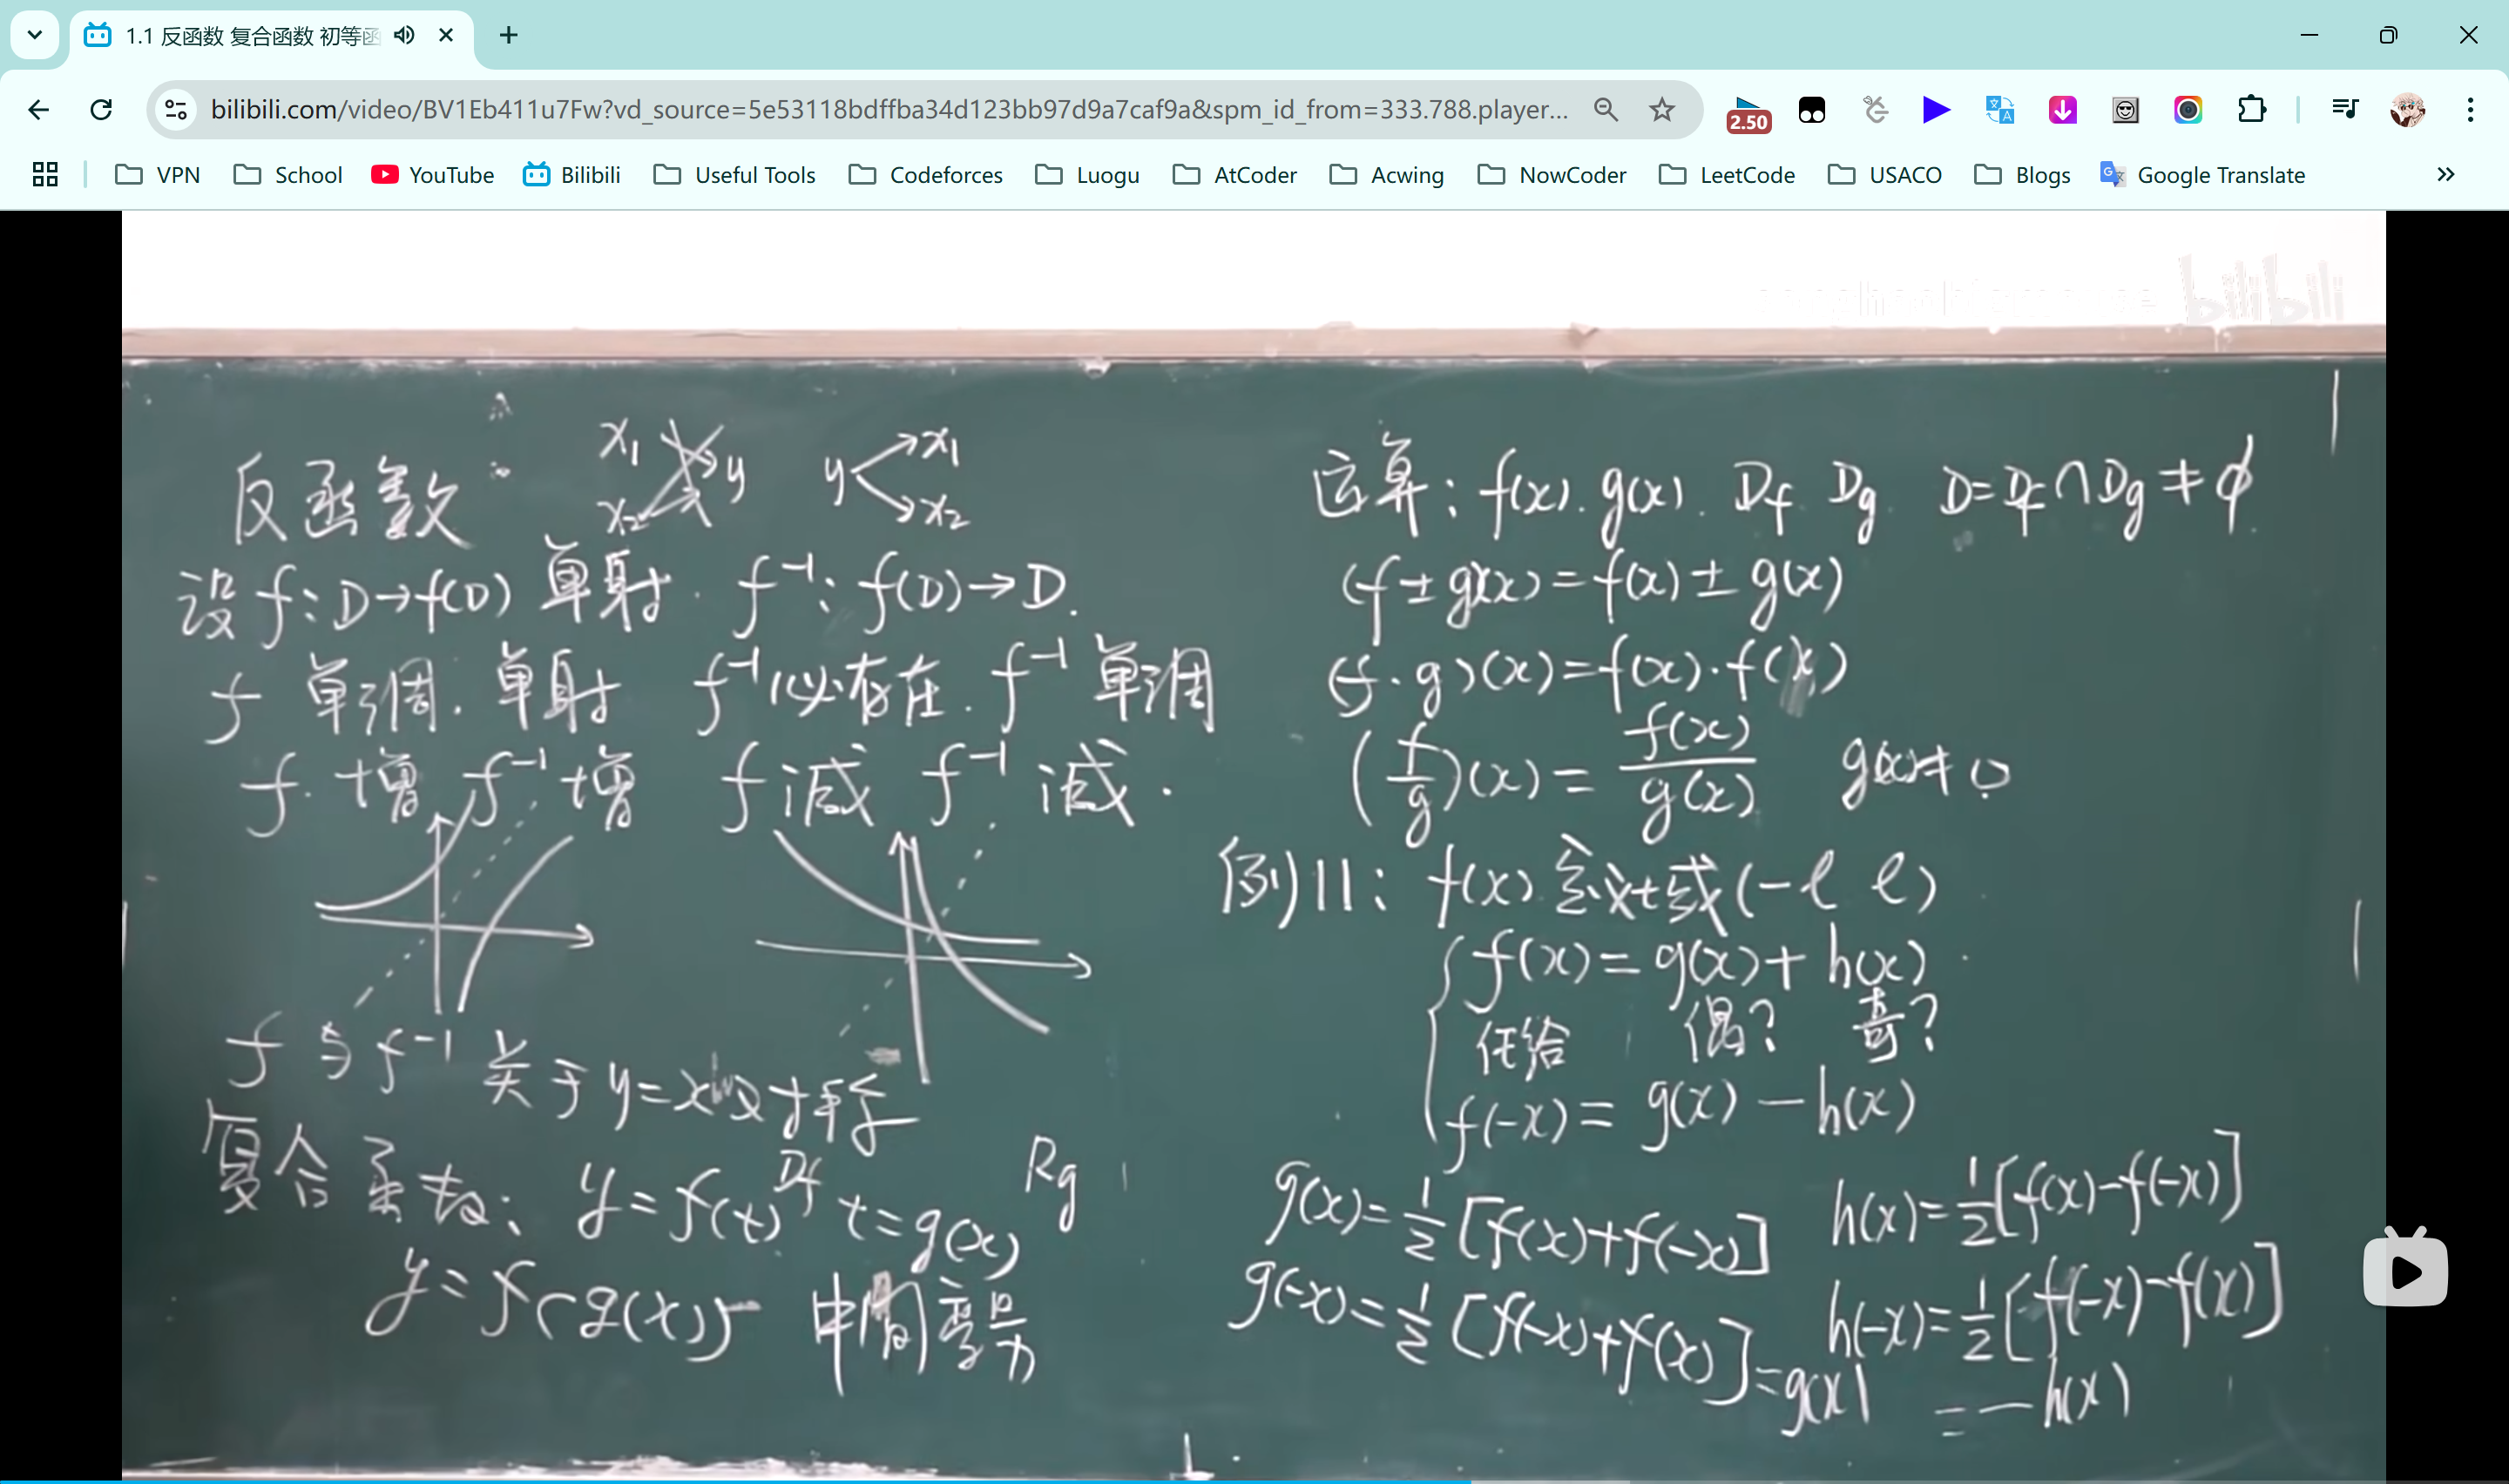 1.1 反函数 复合函数 初等函
bilibili.com/video/BV1Eb411u7Fw?vd_source=5e53118bdffba34d123bb97d9a7caf9a&spm_id_from=333.788.player...
2.50
VPN School YouTube Bilibili Useful Tools Codeforces Luogu AtCoder Acwing NowCoder LeetCode USACO Blogs Google Translate
bilibili
反函数: x₁ x₂ y y x₁ x₂
设 f:D→f(D) 单射. f⁻¹: f(D)→D.
f 单调. 单射 f⁻¹必存在. f⁻¹ 单调
f 增 f⁻¹ 增 f 减 f⁻¹ 减.
f 与 f⁻¹ 关于 y=x 对称
复合函数: y=f(t) Df t=g(x) Rg
y=f(g(x)) 中间变量
运算: f(x). g(x). Df Dg D=Df∩Dg≠φ.
(f±g)(x)=f(x)±g(x)
(f·g)(x)=f(x)·f(x)
(f/g)(x)=f(x)/g(x) g(x)≠0
例11: f(x) 定义域(-ℓ ℓ)
f(x)=g(x)+h(x)
任给 偶? 奇?
f(-x)=g(x)-h(x)
g(x)=1/2[f(x)+f(-x)] h(x)=1/2[f(x)-f(-x)]
g(-x)=1/2[f(-x)+f(x)]=g(x) h(-x)=1/2[f(-x)-f(x)]
=-h(x)